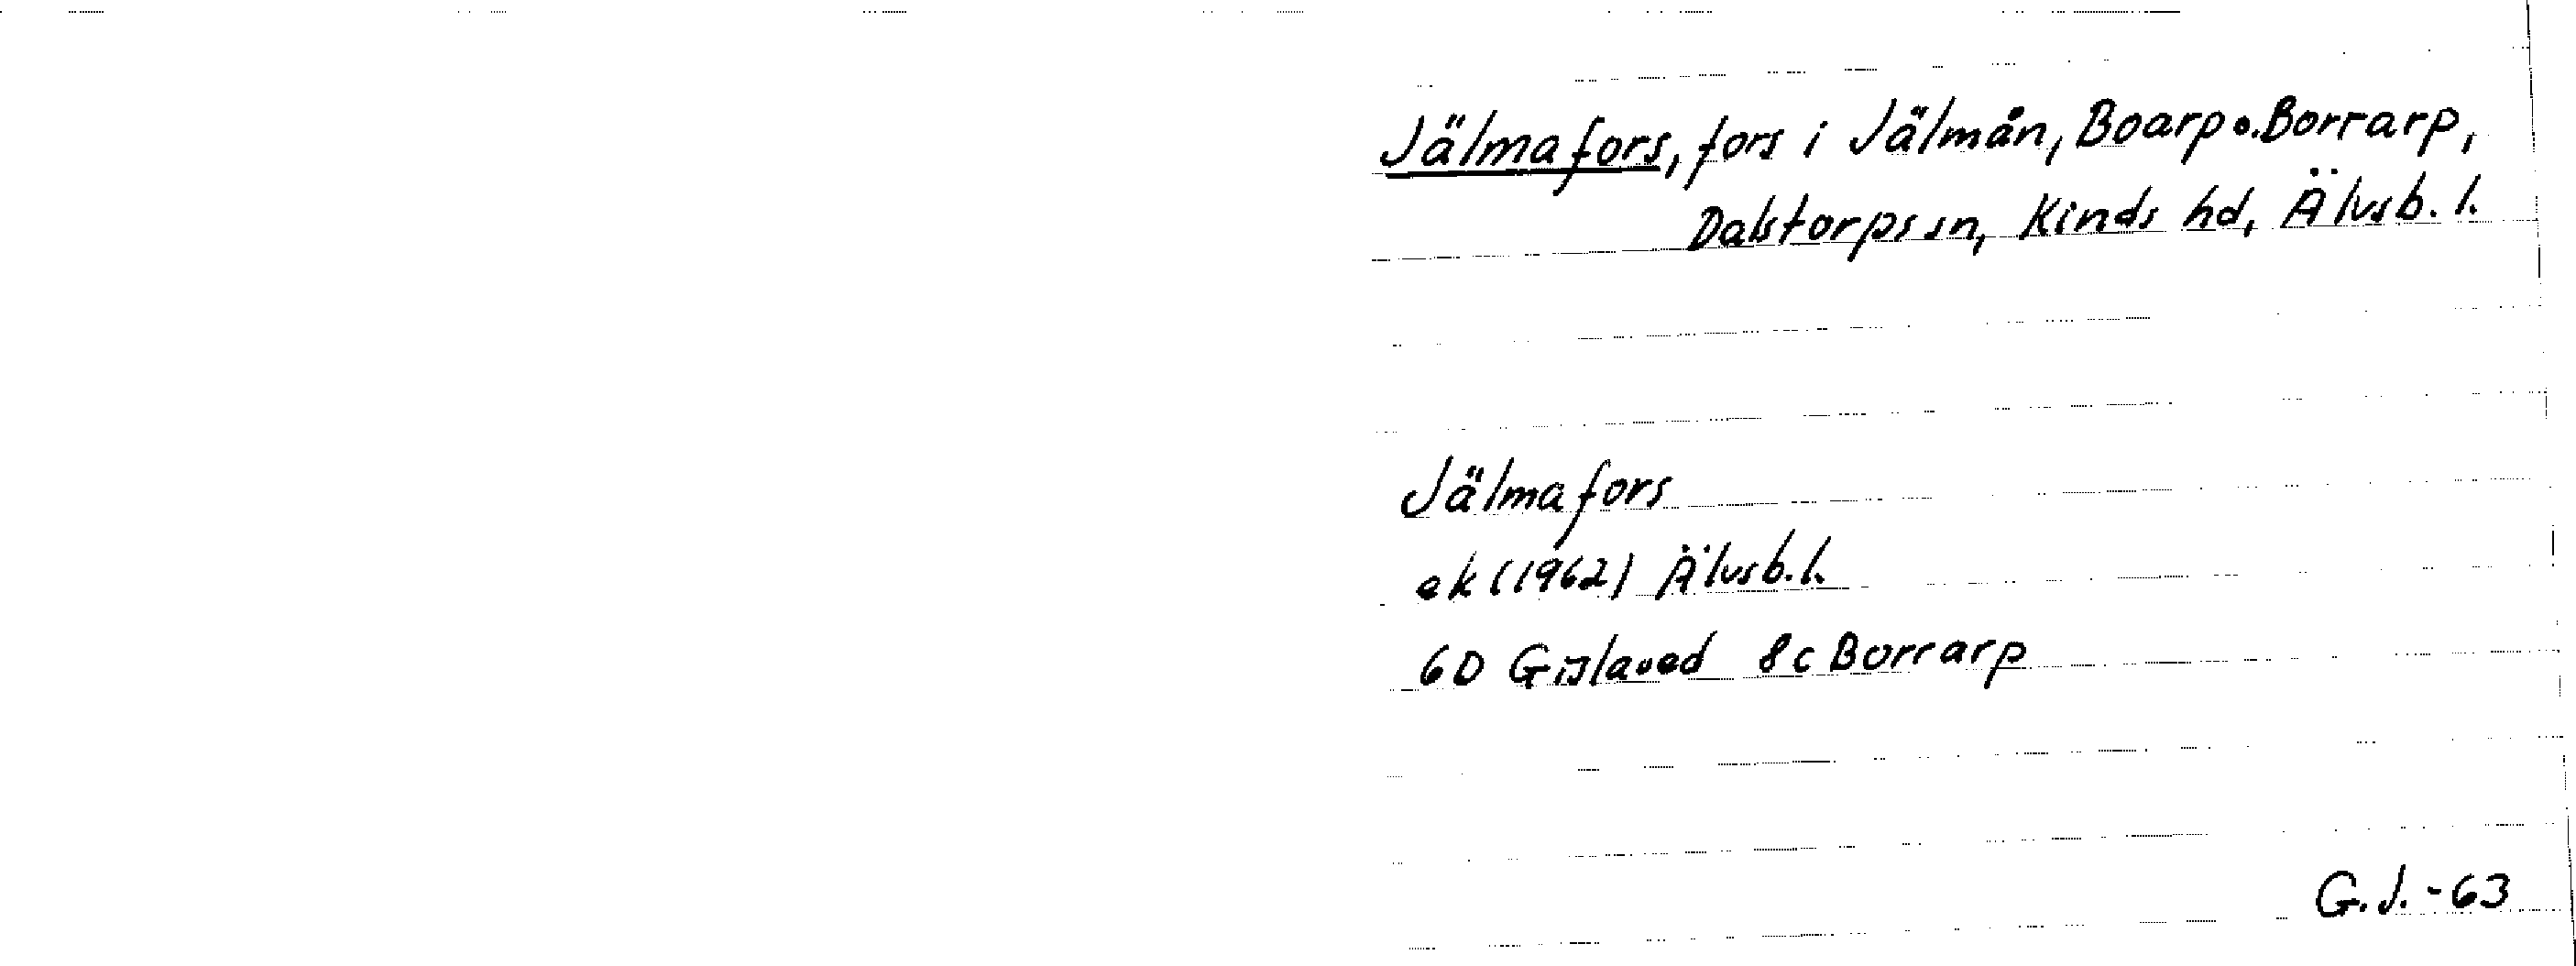 Jälmafors, fors i Jälmån, Boarp o. Borrarp,
Dalstorps sn, Kinds hd, Älvsb. l.
Jälmafors
ek (1962) Älvsb. l.
6D Gislaved 8c Borrarp
G.J. -63